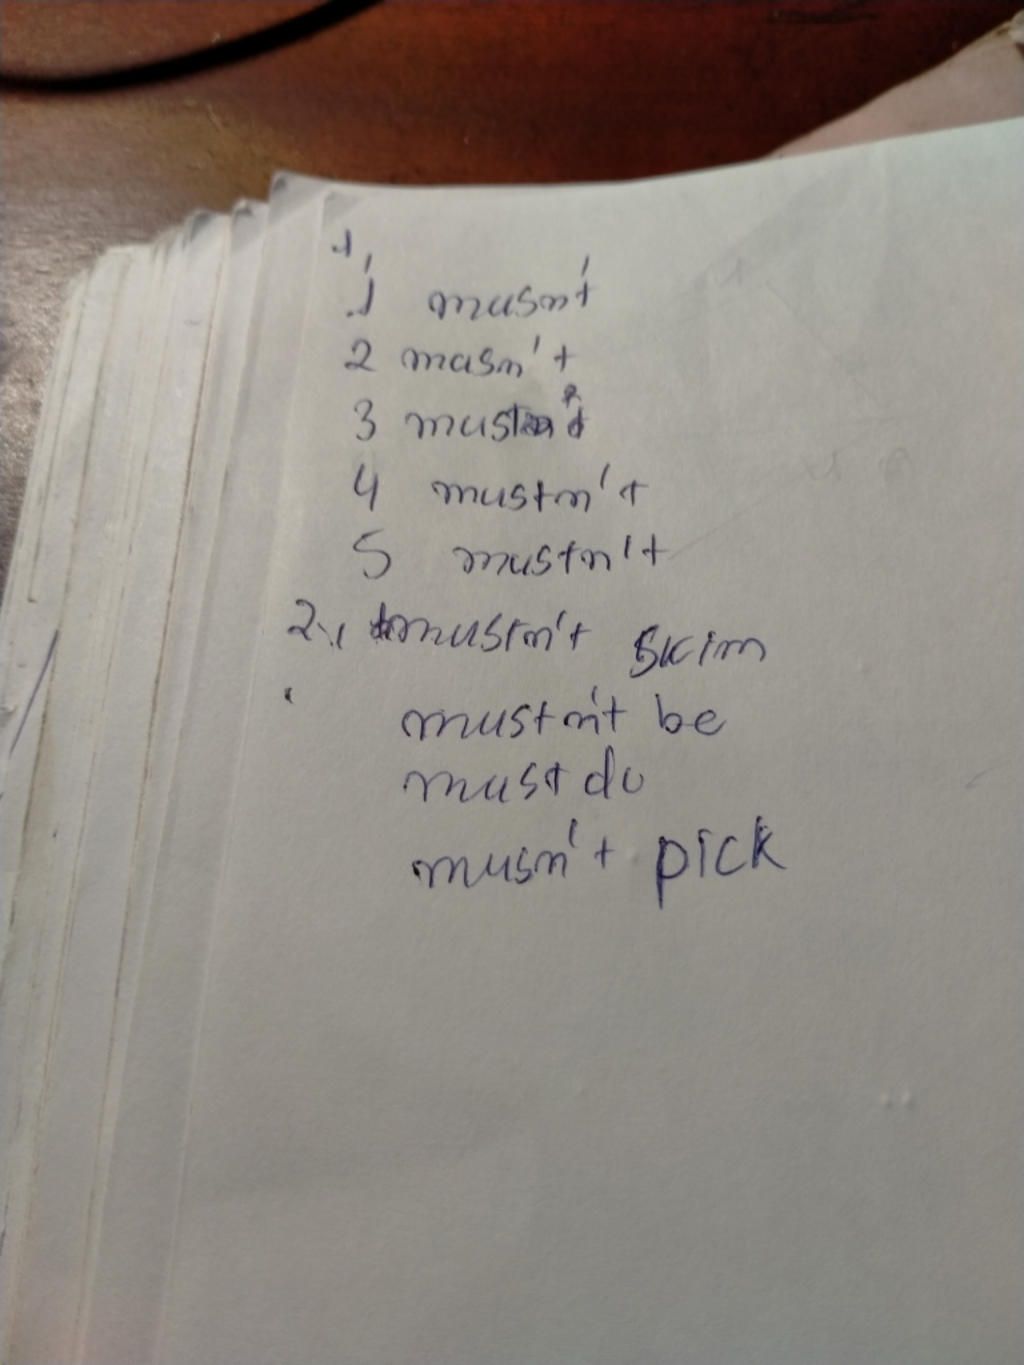 1,
1 musn't
2 masn't
3
4 mustn't
5 mustn't
2.1 mustn't skim
mustn't be
must do
musn't pick